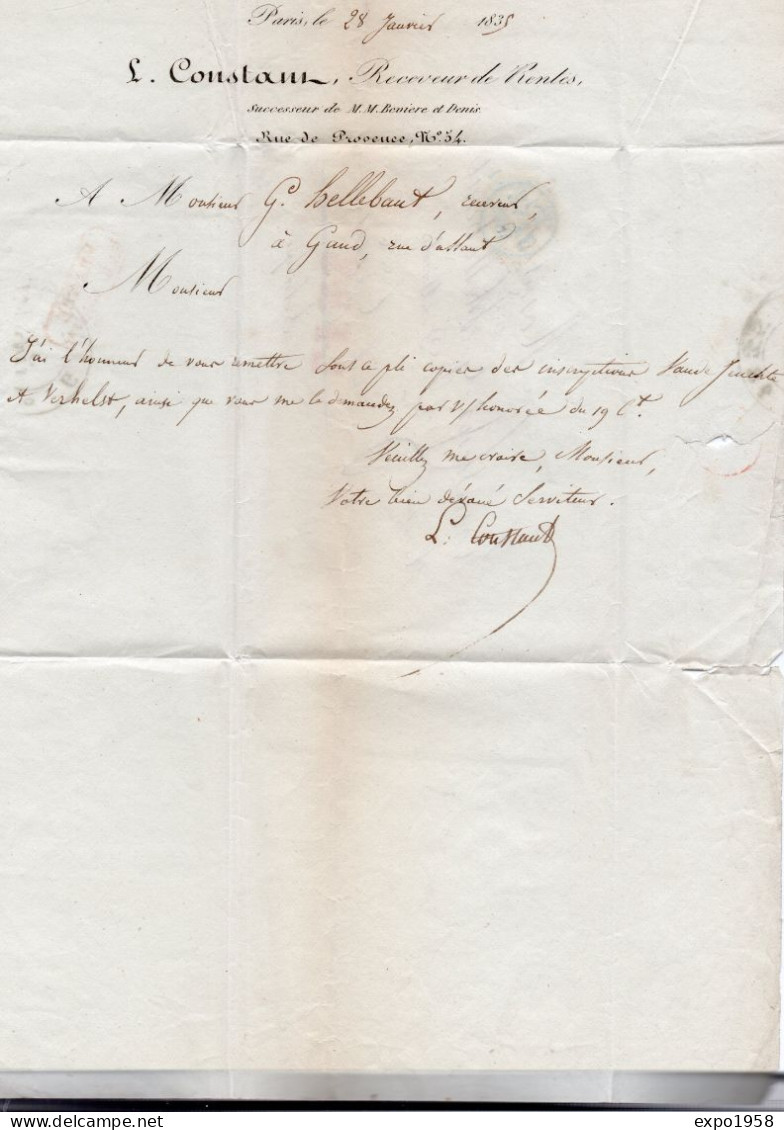 Paris, le 28 Janvier 1835
L. Constant, Receveur de Rentes,
Successeur de M.M. Boviere et Denis
Rue de Provence, No. 54.
A Monsieur G. hellebaut, receveur,
à Gand, rue d'assaut
Monsieur
J'ai l'honneur de vous remettre sous ce pli copies des inscriptions
& Verhelst, ainsi que vous me le demandez par V/ honorée du 19 Ct.
Veuillez me croire, Monsieur,
Votre bien dévoué Serviteur.
L. Constant
expo1958